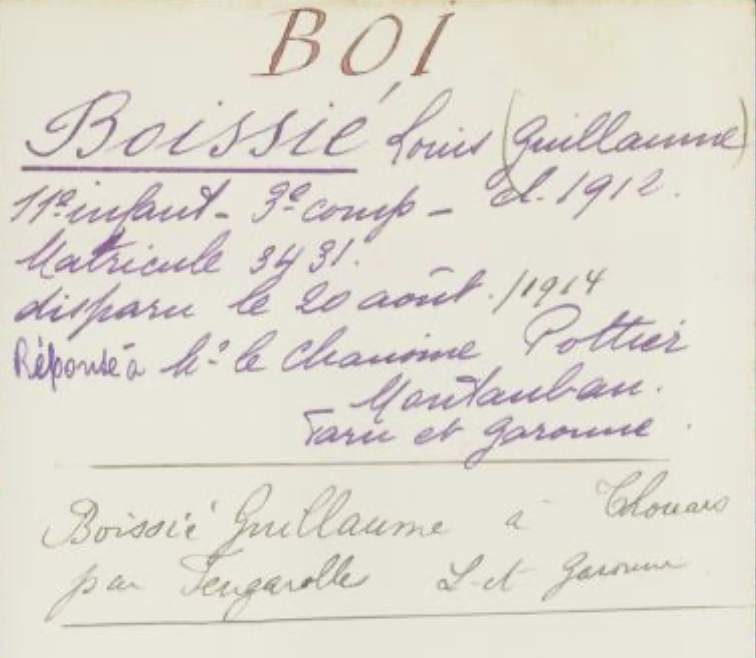 BOI
Boissié Louis (Guillaume)
11e infant - 3e comp - cl. 1912.
Matricule 3431.
disparu le 20 août. /1914
Réponse à Mr le Chanoine Pottier
Montauban.
Tarn et Garonne.
Boissié Guillaume à Thouars
par Feugarolles L-et Garonne